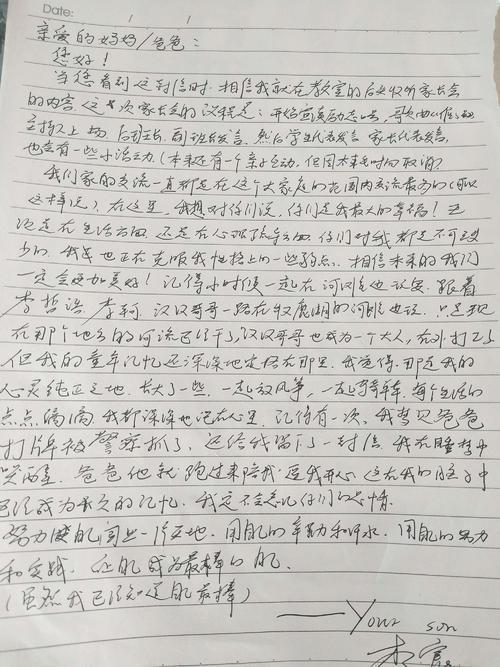 Date: / /
亲爱的妈妈/爸爸:
您好!
当您看到这封信时,相信我就在教室的后边听家长会
的内容。这次家长会的议程是:开始宣读励志,
主持人上场,后班长,副班长发言。然后学生代表发言,家长代表发言,
也会有一些小活动(本来还有一个亲子互动,但因太耗时间取消)
我们家的交流一直都是在这个大家庭的范围内交流最多的(可以
这样说)在这里,我想对你们说,你们是我最大的幸福!无
论是在生活方面,还是在心理疏导方面,你们对我都是不可缺
少的。我也正在克服我性格上的一些弱点,相信未来的我们
一定会更加美好!记得小时候一起在河边玩耍,跟着
李哲浩,李轲,汉汉哥哥一路在牧鹿湖的河边玩,只是现
在那个地方的河流已经干了,汉汉哥哥也成为一个大人,在外打工了
但我的童年记忆还深深地定居在那里,我觉得,那是我的
心灵纯正之地。长大了一些,一起放风筝,一起骑单车,每个生活的
点点滴滴,我都深深地记在心里。记得有一次,我梦见爸爸
打牌被警察抓了,还给我留下了一封信,我在睡梦中
哭醒,爸爸他就跑过来陪我,逗我开心,这在我的脑子中
已经成为永久的记忆,我定不会忘记你们的恩情。
努力让自己闯出一片天地,用自己的辛勤和汗水,用自己的努力
和实践,让自己成为最棒的自己。
(虽然我已经知道自己最棒)
——Your son